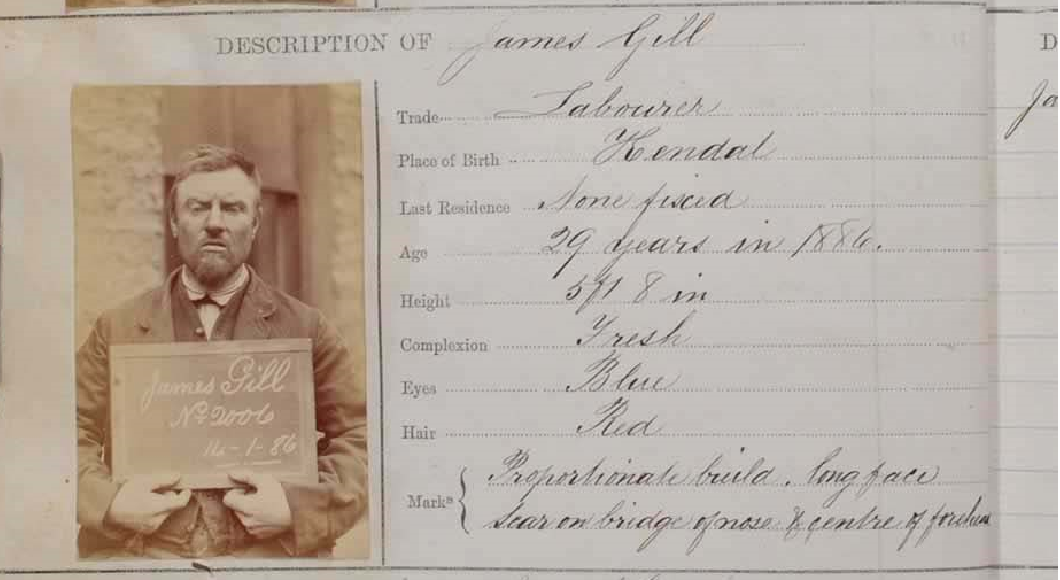 DESCRIPTION OF James Gill
Trade Labourer
Place of Birth Kendal
Last Residence None fixed
Age 29 years in 1886.
Height 5ft 8 in
Complexion Fresh
Eyes Blue
Hair Red
Marks Proportionate build, long face
Scar on bridge of nose & centre of forehea
James Gill
No 2006
-1-86
D
Ja